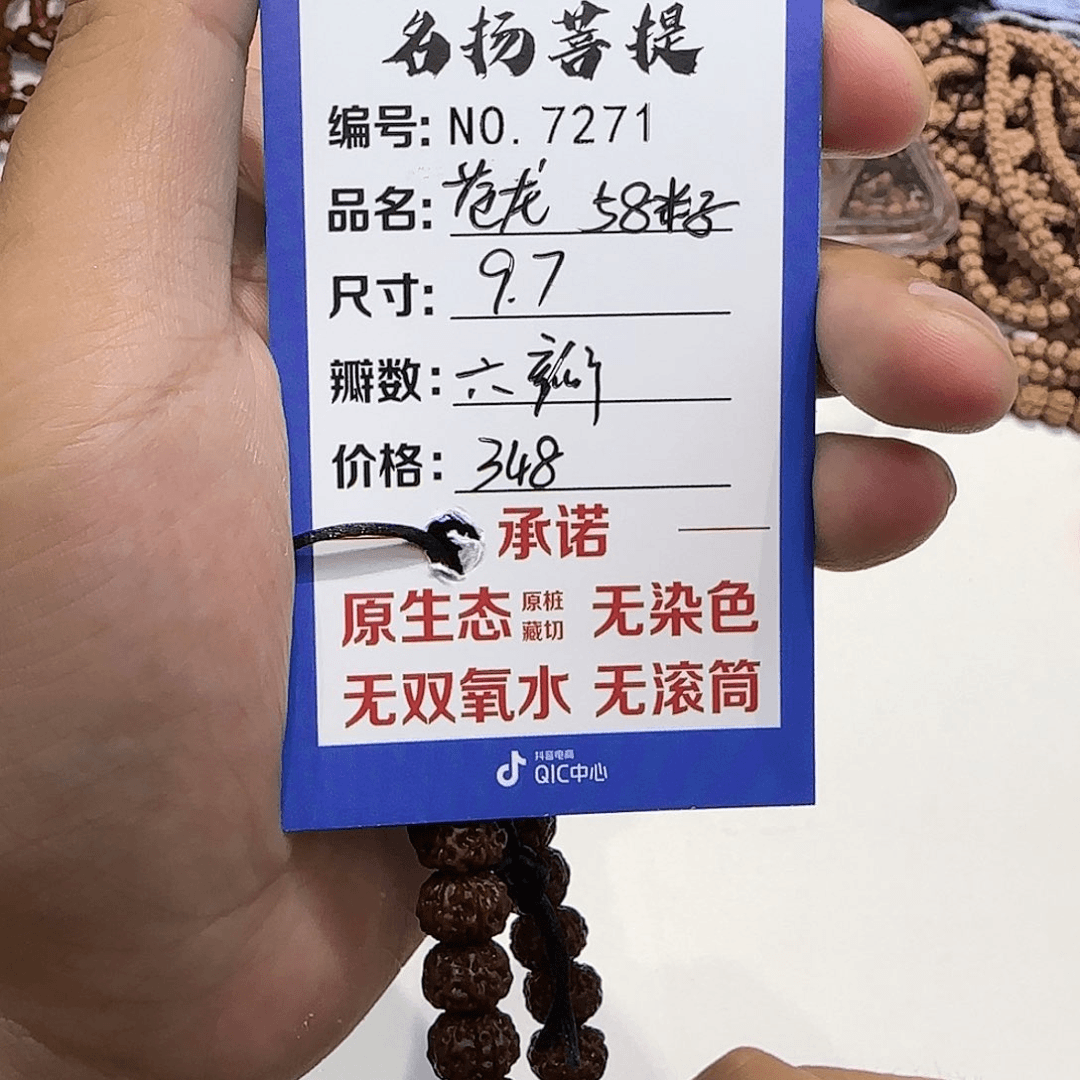 名扬菩提
编号: NO. 7271
品名: 苍龙 58籽
尺寸: 9.7
瓣数: 六瓣
价格: 348
承诺
原生态 原桩藏切 无染色
无双氧水 无滚筒
抖音电商
QIC中心